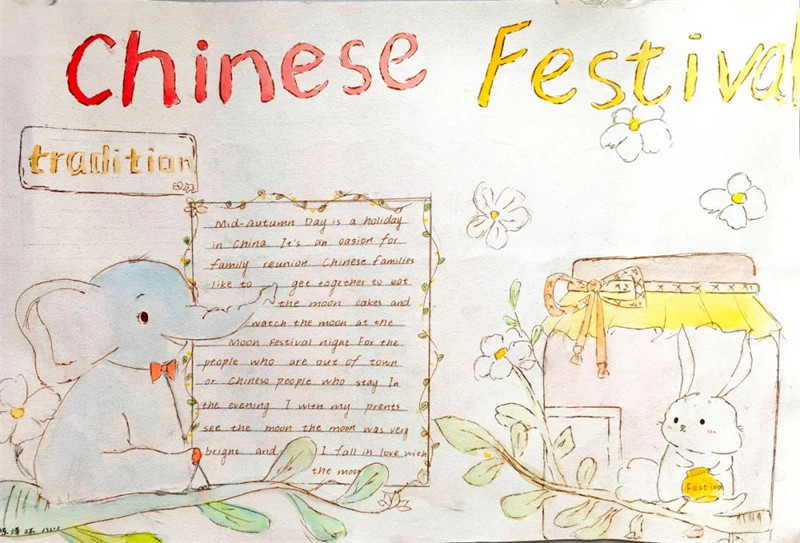 Chinese Festival
tradition
Mid-Autumn Day is a holiday
in China. It's an oasion for
family reunion. Chinese families
like to get together to eat
the moon cakes and
watch the moon at the
Moon Festival night For the
people who are out of town
or Chinese people who stay In
the evening I with my prents
see the moon the moon was very
bright and I fall in love with
the moon
Festival